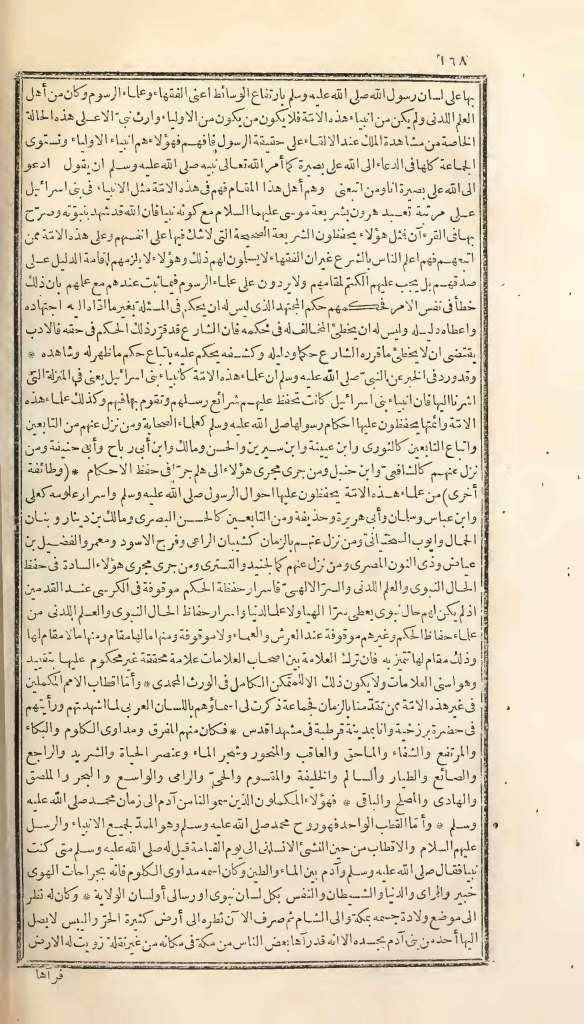 ١٦٨
بها على لسان رسول الله صلى الله عليه وسلم بارتفاع الوسائط أعنى الفقهاء وعلماء الرسوم وكان من أهل
العلم اللدنى ولم يكن من انبياء هذه الامّة فلا يكون من يكون من الاولياء وارث نبىّ الاعلى هذه الحالة
الخاصة من مشاهدة الملك عند الالقاء على حقيقة الرسول فافهم فهؤلاء هم انبياء الاولياء وتستوى
الجماعة كلها فى الدعاء الى الله على بصيرة كما أمر الله تعالى نبيه صلى الله عليه وسلم ان يقول ادعو
الى الله على بصيرة انا ومن اتبعنى وهم أهل هذا المقام فهم فى هذه الامّة مثل الانبياء فى بنى اسرائيل
على مرتبة تعبد هرون بشريعة موسى عليهما السلام مع كونه نبيا فان الله قد شهد بنبوّته وصرّح
بها فى القرءآن فمثل هؤلاء يحفظون الشريعة الصحيحة التى لا شك فيها على انفسهم وعلى هذه الامّة ممن
اتبعهم فهم اعلم الناس بالشرع غير ان الفقهاء لا يسلون لهم ذلك وهؤلاء لا يلزمهم اقامة الدليل على
صدقهم بل يجب عليهم الكتم لمقامهم ولا يردون على علماء الرسوم فيما ثبت عندهم مع علمهم بان ذلك
خطأ فى نفس الامر فحكمهم حكم المجتهد الذى ليس له ان يحكم فى المسئلة بغير ما ادّاه اليه اجتهاده
واعطاه دليله وليس له ان يخطئ المخالف له فى حكمه فان الشارع قد قرّر ذلك الحكم فى حقه فالادب
يقتضى ان لا يخطئ ما قرره الشارع حكما ودليله وكشفه يحكم عليه باتباع حكم ما ظهر له وشاهده *
وقد ورد فى الخبر عن النبىّ صلى الله عليه وسلم أن علماء هذه الامّة كأنبياء بنى اسرائيل يعنى فى المنزلة التى
اشرنا اليها فان انبياء بنى اسرائيل كانت تحفظ عليهم شرائع رسلهم وتقوم بها فيهم وكذلك علماء هذه
الامّة وائمتها يحفظون عليها احكام رسولها صلى الله عليه وسلم كعلماء الصحابة ومن نزل عنهم من التابعين
واتباع التابعين كالثورى وابن عيينة وابن سيرين والحسن ومالك وابن أبى رباح وأبى حنيفة ومن
نزل عنهم كالشافعىّ وابن حنبل ومن جرى مجرى هؤلاء الى هلم جرّا فى حفظ الاحكام * (وطائفة
أخرى) من علماء هذه الامّة يحفظون عليها احوال الرسول صلى الله عليه وسلم واسرار علومه كعلى
وابن عباس وسلمان وأبى هريرة وحذيفة ومن التابعين كالحسن البصرى ومالك بن دينار وبنان
الجمال وايوب السختيانى ومن نزل عنهم بالزمان كشيبان الراعى وفرج الاسود ومعمر والفضيل بن
عياض وذى النون المصرى ومن نزل عنهم كالجنيد والتسترى ومن جرى مجرى هؤلاء السادة فى حفظ
الحال النبوى والعلم اللدنى والسرّ الالهىّ فاسرار حفظة الحكم موقوفة فى الكرسى عند القدمين
اذ لم يكن لهم حال نبوى يعطى سرّا الهيا ولا علما لدنيا واسرار حفاظ الحال النبوى والعلم اللدنى من
علماء حفاظ الحكم وغيرهم موقوفة عند العرش والعماء ولا موقوفة ومنها ما لها مقام ومنها ما لا مقام لها
وذلك مقام لها تتميز به فان ترك العلامة بين اصحاب العلامات علامة محققة غير محكوم عليها بتقييد
وهو اسنى العلامات ولا يكون ذلك الا للمتمكن الكامل فى الورث المحمدى * وأمّا اقطاب الامم المكملين
فى غير هذه الامّة ممن تقدّمنا بالزمان فجماعة ذكرت لى اسماؤهم باللسان العربى لما اشهدتهم ورأيتهم
فى حضرة برزخية وانا بمدينة قرطبة فى مشهد اقدس * فكان منهم المفرق ومداوى الكلوم والبكاء
والمرتفع والشفاء والماحق والعاقب والمنحور وشجر الماء وعنصر الحياة والشريد والراجع
والصائع والطيار والسالم والخليفة والمقسوم والحىّ والرامى والواسع والبحر والملصق
والهادى والمصلح والباقى * فهؤلاء المكملون الذين سموا لنا من آدم الى زمان محمد صلى الله عليه
وسلم * وأمّا القطب الواحد فهو روح محمد صلى الله عليه وسلم وهو الممدّ لجميع الانبياء والرسل
عليهم السلام والاقطاب من حين النشئ الانسانى الى يوم القيامة قيل له صلى الله عليه وسلم متى كنت
نبيا فقال صلى الله عليه وسلم وآدم بين الماء والطين وكان اسمه مداوى الكلوم فانه بجراحات الهوى
خبير والراى والدنيا والشيطان والنفس بكل لسان نبوى او رسالى أو لسان الولاية * وكان له نظر
الى موضع ولادة جسمه بمكة والى الشام ثم صرف الآن نظره الى أرض كثيرة الحرّ واليبس لا يصل
اليها أحد من بنى آدم بجسده الا انه قد رآها بعض الناس من مكة فى مكانه من غير نقلة زويت له الارض
فرآها